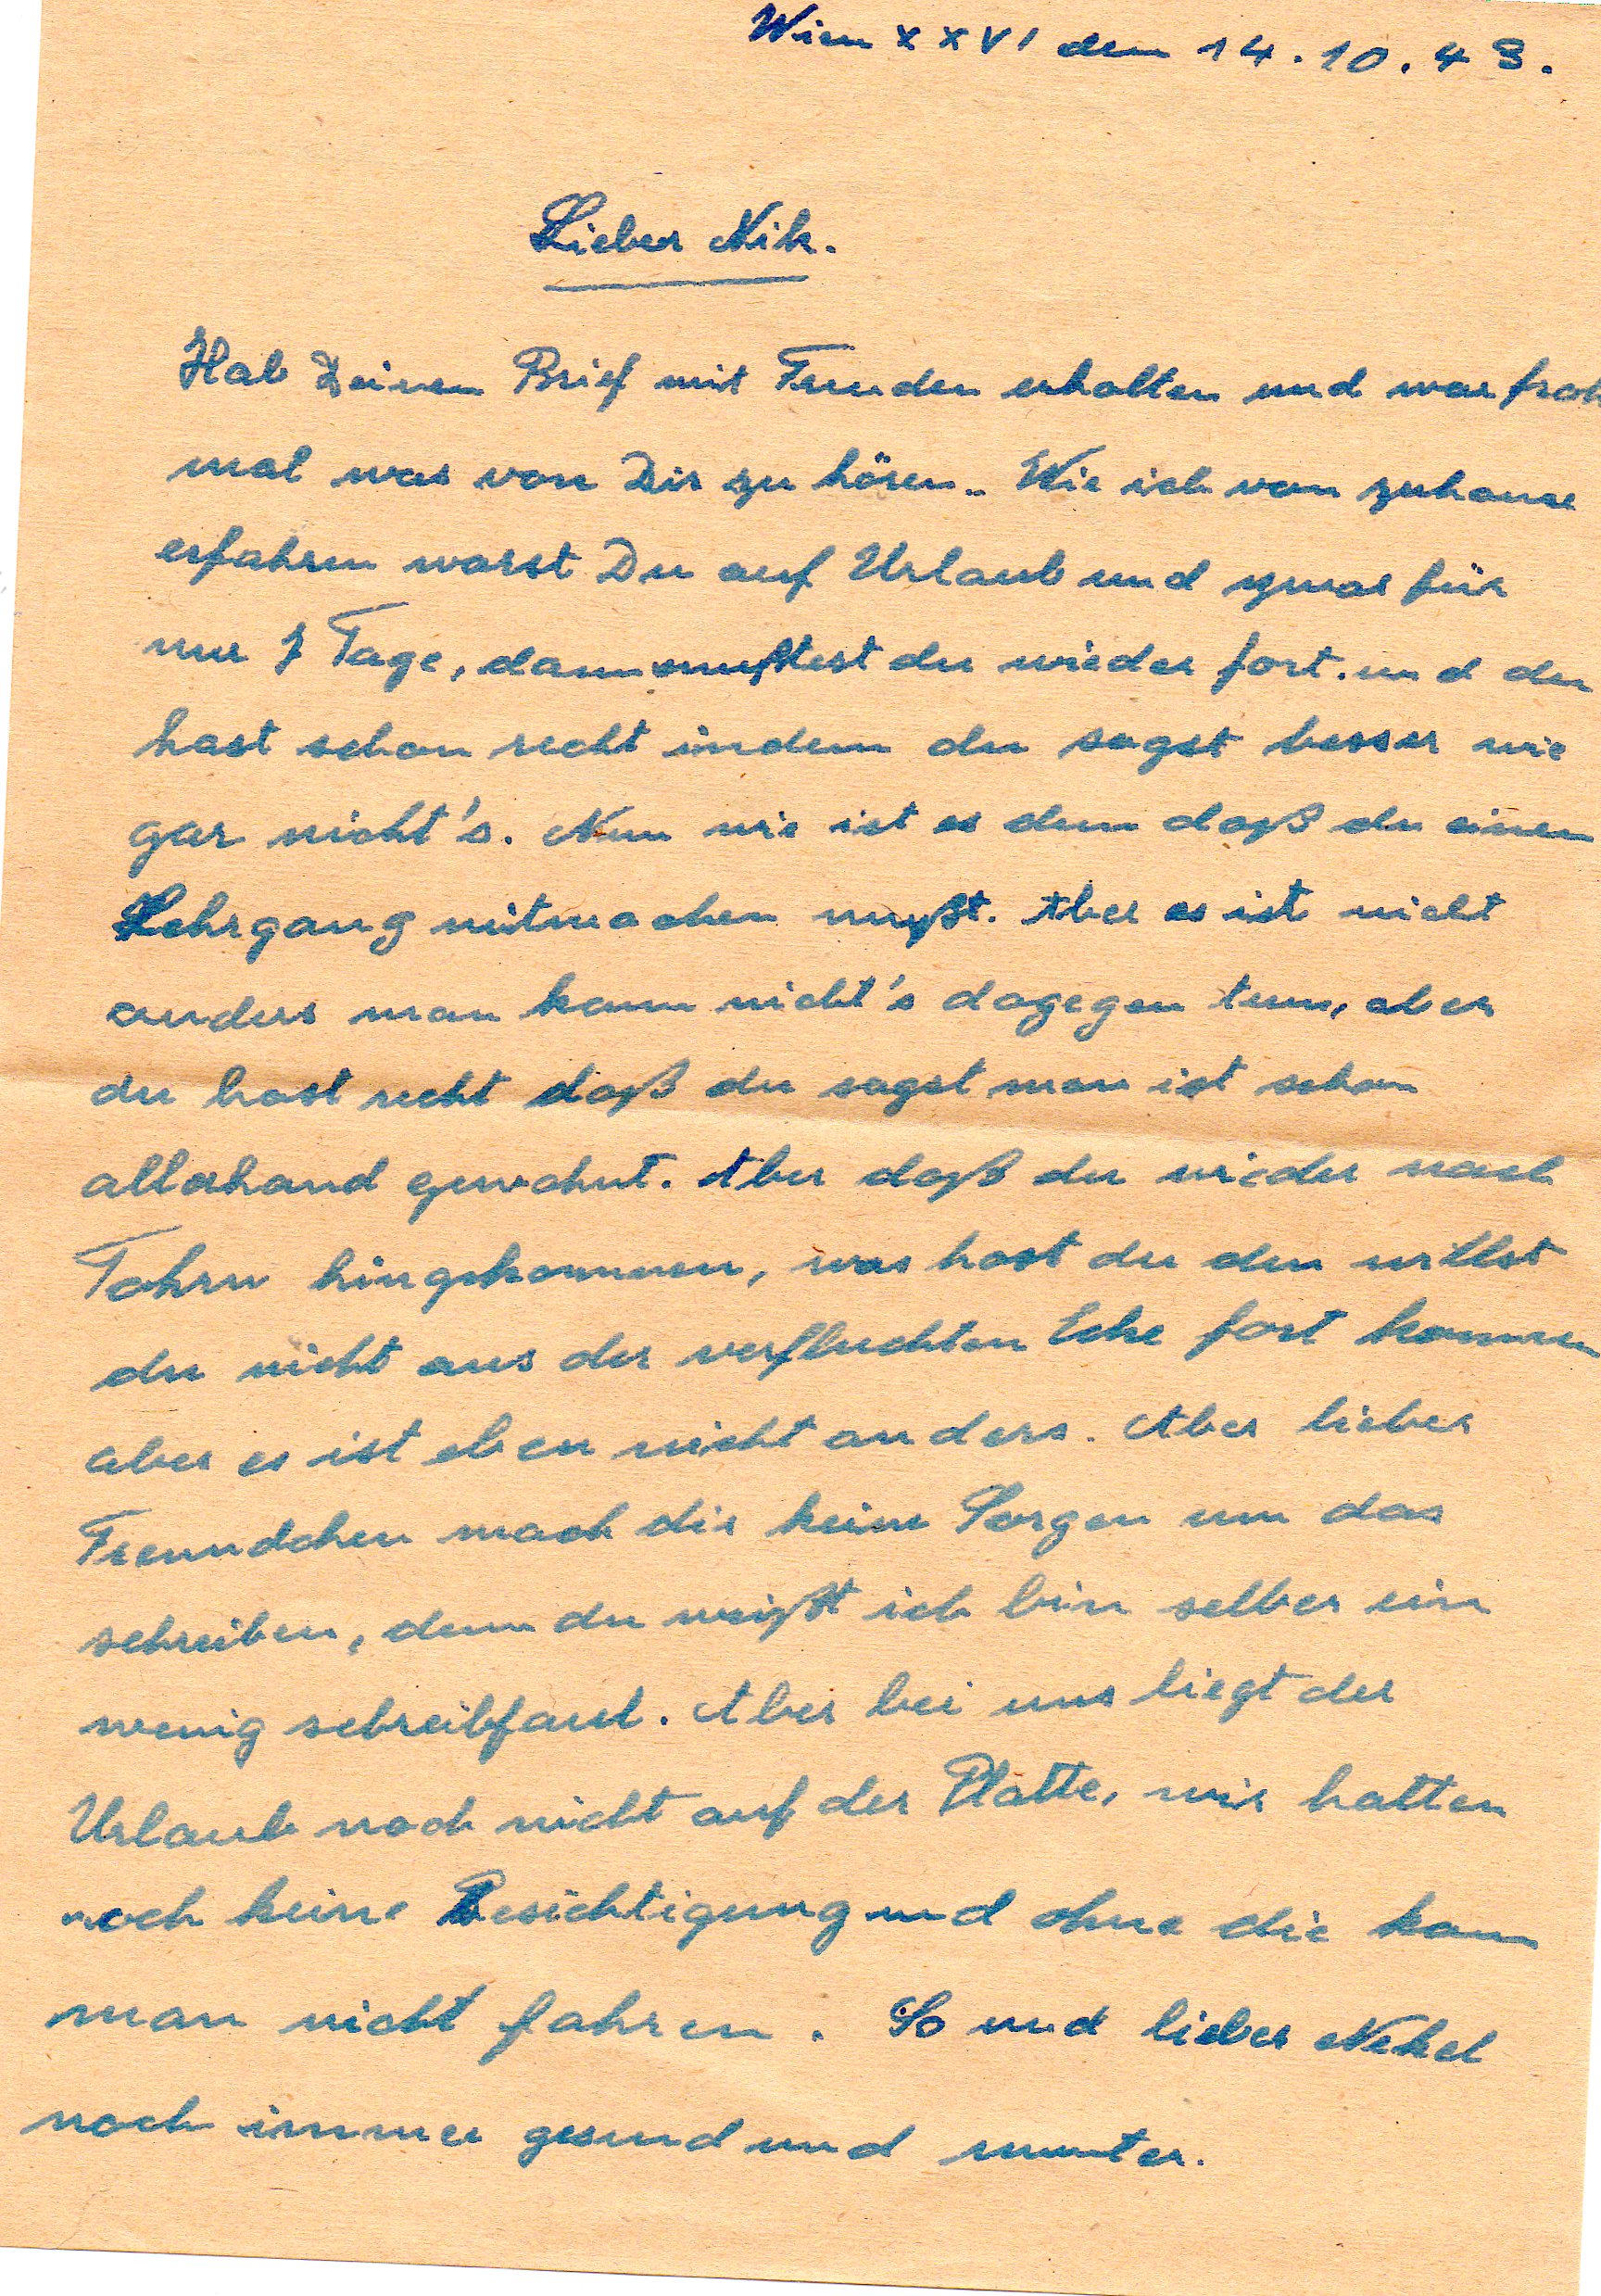 Wien XXVI den 14.10.43.
Lieber Nik.
Hab Deinen Brief mit Freuden erhalten und war froh
mal was von Dir zu hören.. Wie ich von zuhause
erfahren warst Du auf Urlaub und zwar für
nur 7 Tage, dann mußtest du wieder fort. und du
hast schon recht indem du sagst besser wie
gar nicht's. Nun wie ist es den daß du einen
Lehrgang mitmachen mußt. Aber es ist nicht
anders man kann nicht's dagegen tun, aber
du hast recht daß du sagst man ist schon
allerhand gewohnt. Aber daß du wieder nach
Tohrn hingekommen, was hast du den willst
du nicht aus der verfluchten Ecke fort kommen
aber es ist eben nicht anders. Aber lieber
Freundchen mach dir keine Sorgen um das
schreiben, denn du weißt ich bin selber ein
wenig schreibfaul. Aber bei uns liegt der
Urlaub noch nicht auf der Platte, wir hatten
noch keine Besichtigung und ohne die kann
man nicht fahren. So und lieber Nekel
noch immer gesund und munter.